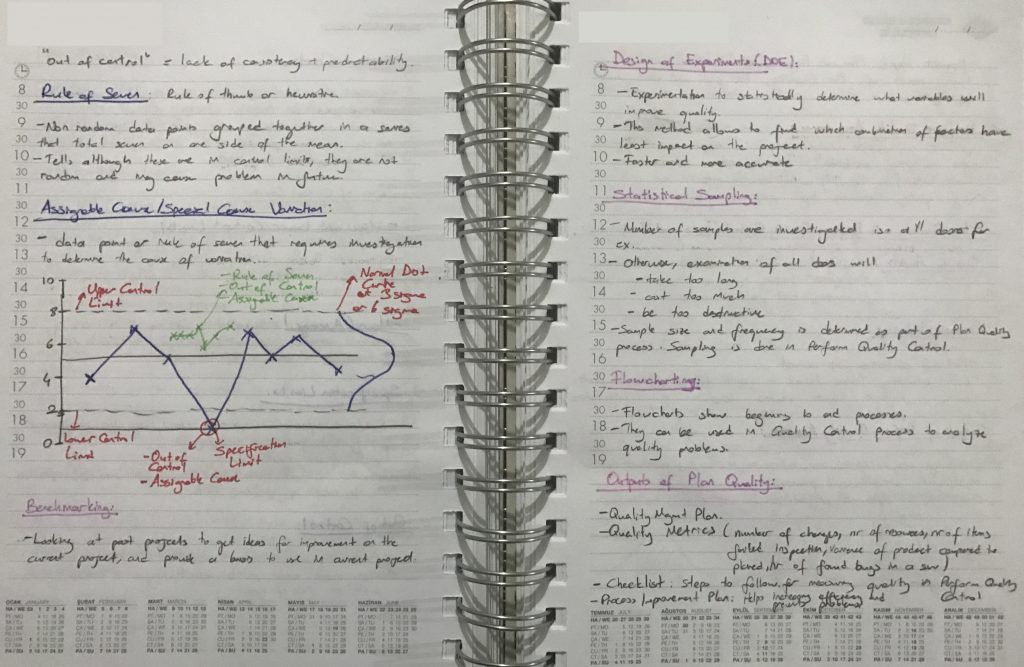 "Out of control" = lack of consistency + predictability.
Rule of Seven: Rule of thumb or heuristic.
- Non random data points grouped together in a series
that total seven on one side of the mean.
- Tells although these are in control limits, they are not
random and may cause problem in future.
Assignable Cause/Special Cause Variation:
- data point or rule of seven that requires investigation
to determine the cause of variation.
Upper Control
Limit
- Rule of Seven
- Out of Control
- Assignable Cause
Normal Dist
Curve
or 3 sigma
or 6 sigma
10
8
6
4
2
0
Lower Control
Limit
- Out of
Control
- Assignable Cause
Specification
Limit
Benchmarking:
- Looking at past projects to get ideas for improvement on the
current project, and provide a basis to use in current project.
8
30
9
30
10
30
11
30
12
30
13
30
14
30
15
30
16
30
17
30
18
30
19
OCAK JANUARY
ŞUBAT FEBRUARY
MART MARCH
NİSAN APRIL
MAYIS MAY
HAZİRAN JUNE
Design of Experiments (DOE):
- Experimentation to statistically determine what variables will
improve quality.
- This method allows to find which combination of factors have
least impact on the project.
- Faster and more accurate
Statistical Sampling:
- Number of samples are investigated in all doors for
ex.
- Otherwise, examination of all does will
- take too long
- cost too much
- be too destructive
- Sample size and frequency is determined as part of Plan Quality
process. Sampling is done in Perform Quality Control.
Flowcharting:
- Flowcharts show beginning to end processes.
- They can be used in Quality Control process to analyze
quality problems.
Outputs of Plan Quality:
- Quality Mgmt Plan.
- Quality Metrics (number of changes, nr of resources, nr of items
failed inspection, variance of product compared to
planned, nr of found bugs in a sw)
- Checklist: steps to follow for measuring quality in Perform Quality
Control
- Process Improvement Plan: helps increasing efficiency and
prevents problems
8
30
9
30
10
30
11
30
12
30
13
30
14
30
15
30
16
30
17
30
18
30
19
TEMMUZ JULY
AĞUSTOS AUGUST
EYLÜL
EKİM
KASIM NOVEMBER
ARALIK DECEMBER